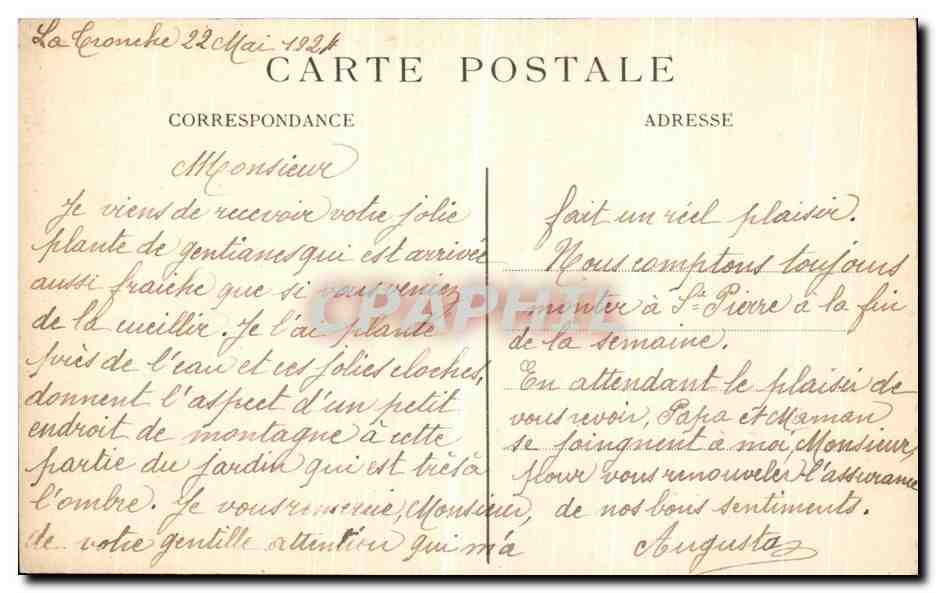 La Tronche 22 Mai 1924
CARTE POSTALE
CORRESPONDANCE
ADRESSE
Monsieur
Je viens de recevoir votre jolie
plante de gentianes qui est arrivée
aussi fraiche que si vous veniez
de la cueillir. Je l'ai planté
près de l'eau et ces jolies cloches,
donnent l'aspect d'un petit
endroit de montagne à cette
partie du jardin qui est très à
l'ombre. Je vous remercie, Monsieur,
de votre gentille attention qui m'a
fait un réel plaisir.
Nous comptons toujours
monter à St Pierre à la fin
de la semaine.
En attendant le plaisir de
vous revoir, Papa et Maman
se joingnent à moi, Monsieur,
pour vous renouveler l'assurance
de nos bons sentiments.
Augusta
CPAPHIL